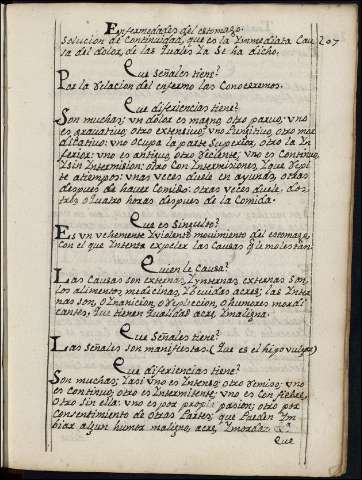 Enfermedades del estomago.
solucion de continuidad, que es la Ynmediata Cau 207
sa del dolor, de las quales Ya Se ha dicho.
Que Señales tiene?
Por la relacion del enfermo las Conoceremos.
Que diferiencias tiene?
Son muchas; vn dolor es magno, otro parvo; vno
es gravativo; otro extensivo; vno Pungitivo, otro mor
dicativo: vno Ocupa la parte Superior, otro la In
ferior: vno es antiguo, otro Reciente; vno es Continuo,
Y Sin Intermision; otro Con Intermisiones, Y que repi
te atiempos: vnas veces duele en ayunas, otras
despues de haver Comido: otras veces duele, dos
tres, o Quatro horas despues de la Comida.
Que es Singulto?
Es vn vehemente Y violento movimiento del estomago,
Con el que Intenta expeler las Causas que molestan.
Quien le Causa?
Las Causas son externas, Y Ynternas: externas son,
los alimentos, medicinas, Y bebidas acres; las Ynter
nas son, o Inanicion, o repleccion, o humores mordi
cantes, Que tienen Qualidad acre, Y maligna.
Que Señales tiene?
Las Señales son manifiestas. (Que es el hipo vulgo)
Que diferiencias tiene?
Son muchas; Y asi vno es Intenso, otro remiso; vno
es Continuo, otro es Intermitente; vno es Con fiebre,
Otro Sin ella: vno es por propia pasion; otro por
Consentimiento de Otras Partes; que Pueden Ym
biar algun humor maligno, acre, Y mordaz &ª.
Que